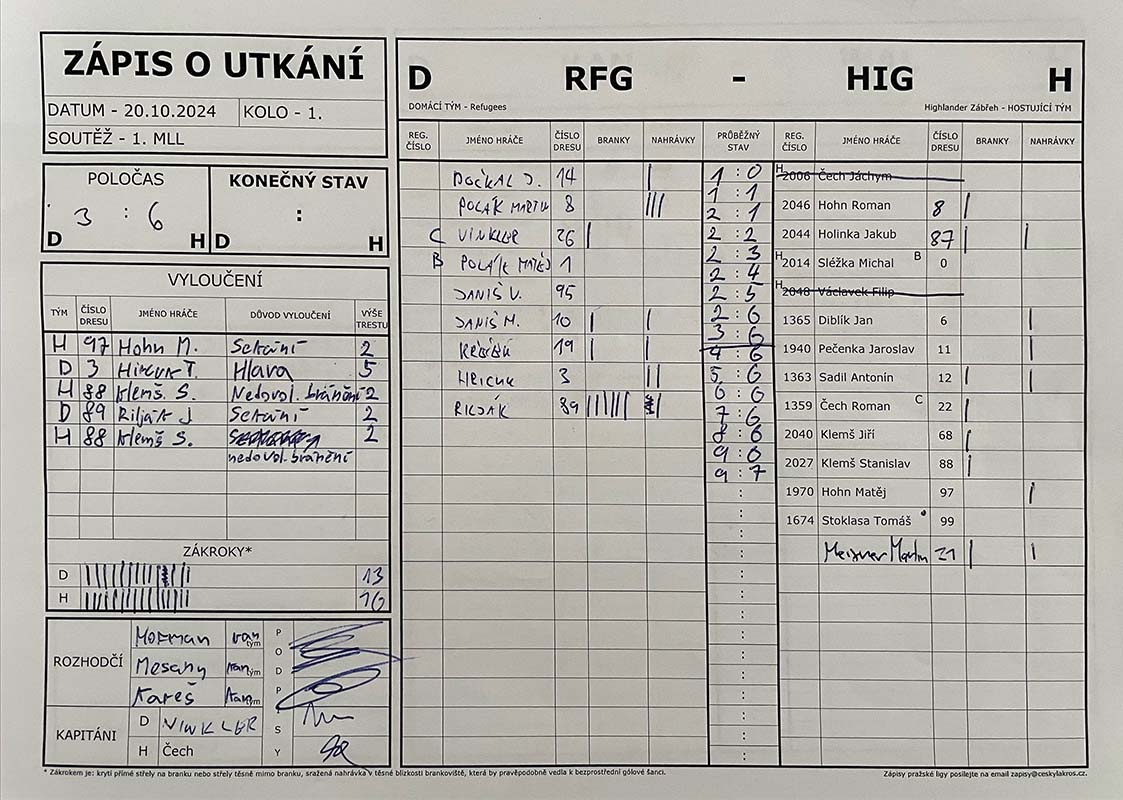 ZÁPIS O UTKÁNÍ
DATUM - 20.10.2024 KOLO - 1.
SOUTĚŽ - 1. MLL
POLOČAS
3 : 6
D H
KONEČNÝ STAV
:
D H
VYLOUČENÍ
TÝM ČÍSLO DRESU JMÉNO HRÁČE DŮVOD VYLOUČENÍ VÝŠE TRESTU
H 97 Hohn M. Sekání 2
D 3 T. Hlava 5
H 88 Klemš S. Nedovol. bránění 2
D 89 Riljak J Sekání 2
H 88 Klemš S. 2
nedovol. bránění
ZÁKROKY*
D 13
H 16
ROZHODČÍ
Hofman tým
Mesany tým
Kareš tým
PODPISY
KAPITÁNI
D VINKLER
H Čech
D RFG - HIG H
DOMÁCÍ TÝM - Refugees Highlander Zábřeh - HOSTUJÍCÍ TÝM
REG. ČÍSLO JMÉNO HRÁČE ČÍSLO DRESU BRANKY NAHRÁVKY PRŮBĚŽNÝ STAV REG. ČÍSLO JMÉNO HRÁČE ČÍSLO DRESU BRANKY NAHRÁVKY
DOČKAL J. 14 |
POLÁK MARTIN 8 |||
C VINKLER 26 |
B POLÁK MATĚJ 1
DANIŠ V. 95
DANIŠ M. 10 | |
19 | |
3 ||
RILJÁK 89
1 : 0
1 : 1
2 : 1
2 : 2
2 : 3
2 : 4
2 : 5
2 : 6
3 : 6
4 : 6
5 : 6
6 : 6
7 : 6
8 : 6
9 : 6
9 : 7
:
:
:
:
:
:
:
:
:
:
H 2006 Čech Jáchym
2046 Hohn Roman 8 |
2044 Holinka Jakub 87 | |
H 2014 Sléžka Michal B 0
H 2048 Václavek Filip
1365 Diblík Jan 6 |
1940 Pečenka Jaroslav 11 |
1363 Sadil Antonín 12 | |
1359 Čech Roman C 22 |
2040 Klemš Jiří 68 |
2027 Klemš Stanislav 88 |
1970 Hohn Matěj 97 |
1674 Stoklasa Tomáš 99
Meixner Martin 21 | |
* Zákrokem je: krytí přímé střely na branku nebo střely těsně mimo branku, sražená nahrávka v těsné blízkosti brankoviště, která by pravěpodobně vedla k bezprostřední gólové šanci.
Zápisy pražské ligy posílejte na email zapisy@ceskylakros.cz.